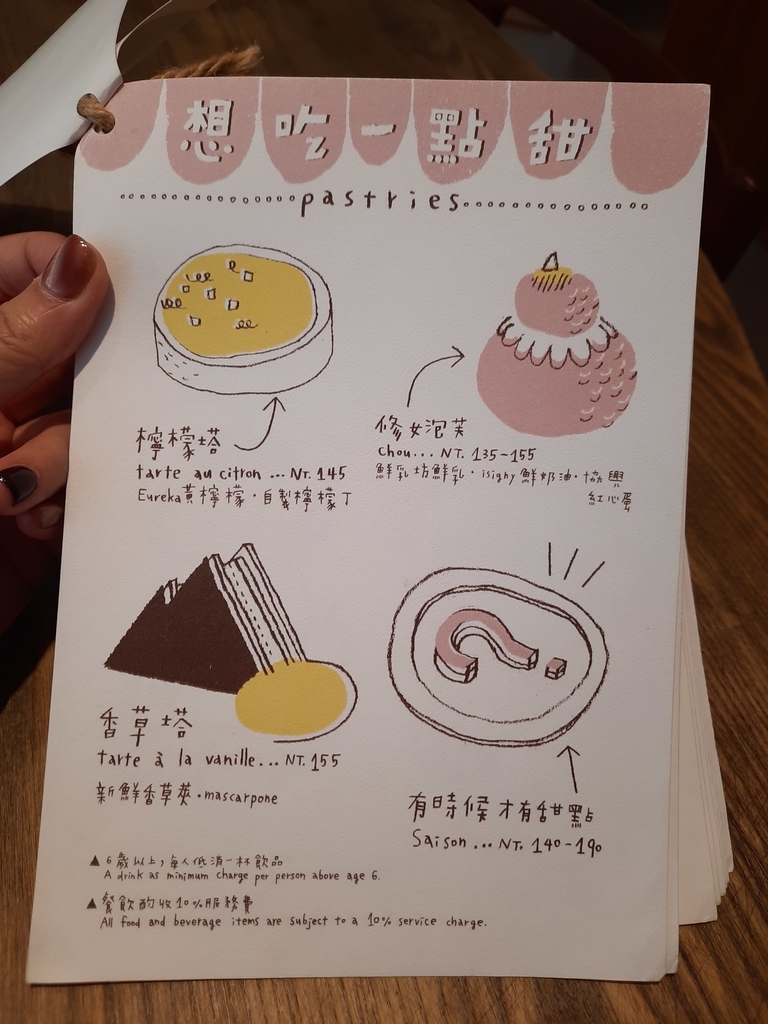 想吃一點甜
pastries
檸檬塔
tarte au citron ... NT. 145
Eureka黃檸檬・自製檸檬丁
修女泡芙
chou... NT. 135-155
鮮乳坊鮮乳・isigny鮮奶油・協興
紅心蛋
香草塔
tarte à la vanille... NT. 155
新鮮香草莢・mascarpone
有時候才有甜點
Saison ... NT. 140-190
▲ 6歲以上，每人低消一杯飲品
A drink as minimum charge per person above age 6.
▲ 餐飲酌收10%服務費
All food and beverage items are subject to a 10% service charge.